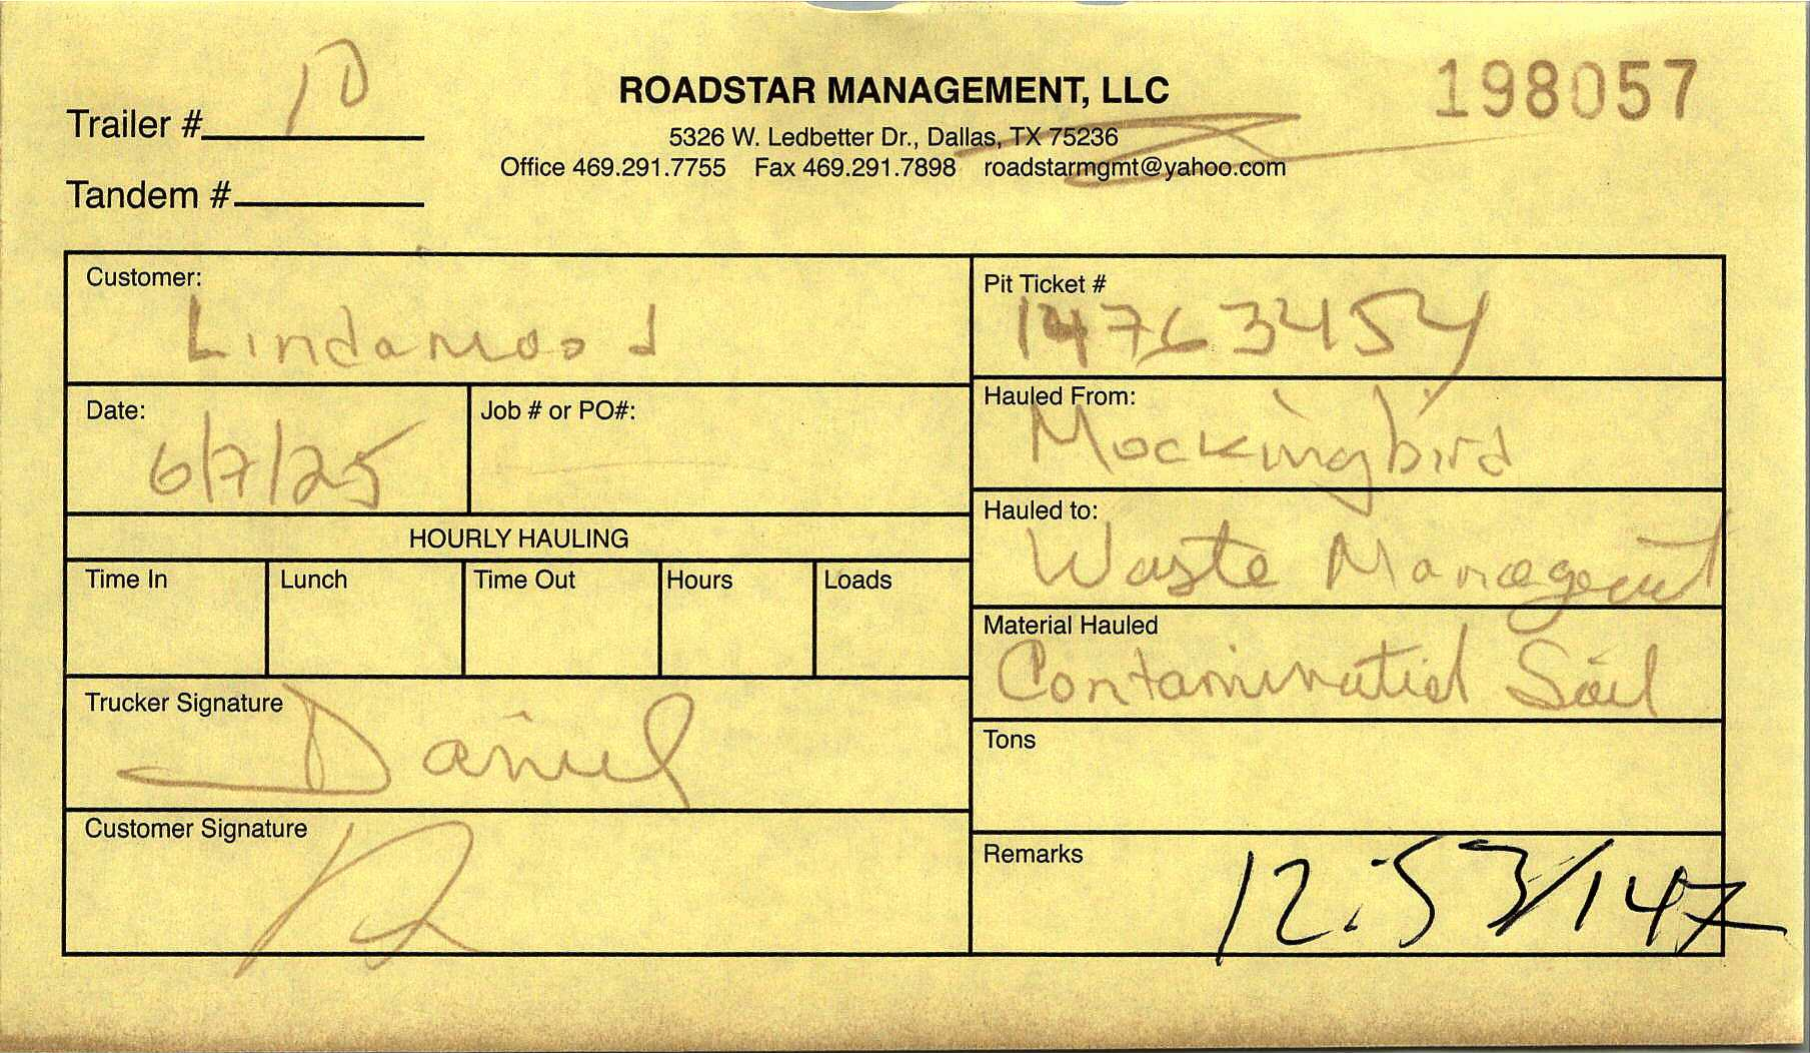 10
Trailer #
Tandem #
ROADSTAR MANAGEMENT, LLC
5326 W. Ledbetter Dr., Dallas, TX 75236
Office 469.291.7755 Fax 469.291.7898 roadstarmgmt@yahoo.com
198057
Customer:
Lindamood
Date:
6/7/25
Job # or PO#:
HOURLY HAULING
Time In Lunch Time Out Hours Loads
Trucker Signature
Daniel
Customer Signature
Pit Ticket #
14763454
Hauled From:
Mockingbird
Hauled to:
Waste Managemt
Material Hauled
Contaminatied Soil
Tons
Remarks
12:53/147